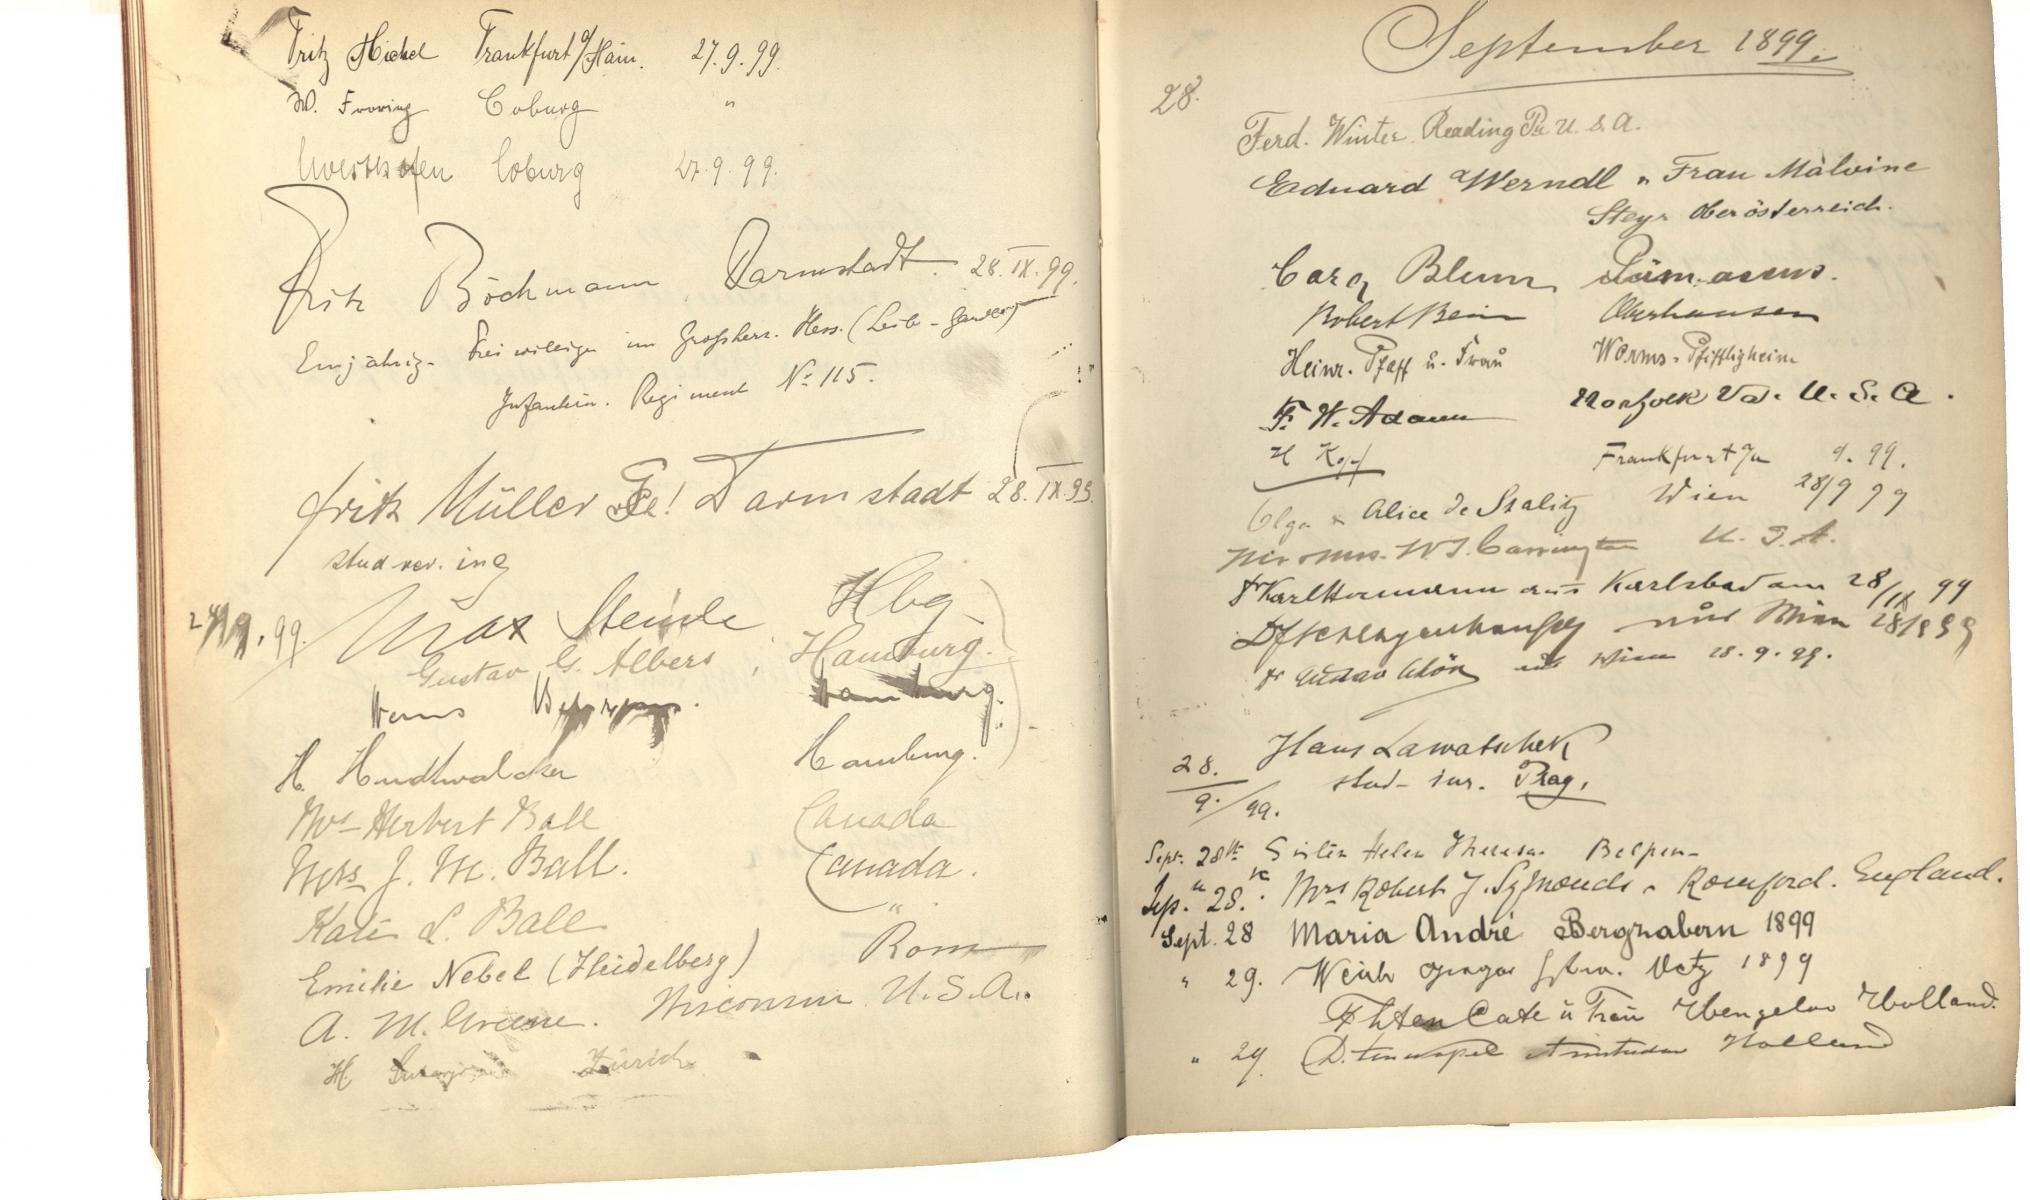 Fritz Hickel Frankfurt a/Main. 27.9.99.
W. Froring Coburg "
Westhofen Coburg 27.9.99.
Fritz Böchmann Darmstadt. 28.IX.99.
Einjährig-Freiwilliger im Großherz. Hess. (Leib-Garde)
Infanterie. Regiment No 115.
Fritz Müller Darmstadt 28.IX.99.
stud rer. ing
Max Steinle Hbg
99. Gustav G. Albers, Hamburg.
Hans Hamburg.
H. Hudtwalcker Hamburg.
Mrs Herbert Ball Canada
Mrs J. M. Ball. Canada.
Kate L. Ball "
Emilie Nebel (Heidelberg) Rom
A. M. Greene. Wisconsin U.S.A.
H. Zürich
September 1899.
28.
Ferd. Winter. Reading Pa U.S.A.
Eduard Werndl u Frau Malvine
Steyr Oberösterreich.
Carl Blum Pirmasens.
Robert Bein Oberhausen
Heinr. Pfaff u. Frau Worms-Pfiffligheim
F. W. Adam Norfolk Va. U.S.A.
H Kopf Frankfurt 9.99.
Olga & Alice de Szalitz Wien 28/9 99
Mr & Mrs. W. J. Carrington U.S.A.
Dr Karl Hermann aus Karlsbad am 28/IX 99
aus Wien 28/9 99
Dr Gustav Schön aus Wien 28.9.99.
Hans Lawatschek
28./9./99. stud. iur. Prag.
Sept. 28th Sister Helen Theresa. Belper
Sep. 28. Mrs Robert J. Symonds. Romford. England.
Sept. 28 Maria André Bergzabern 1899
" 29. Metz 1899
ten Cate u Frau Hengelo Holland.
" 29 Amsterdam Holland